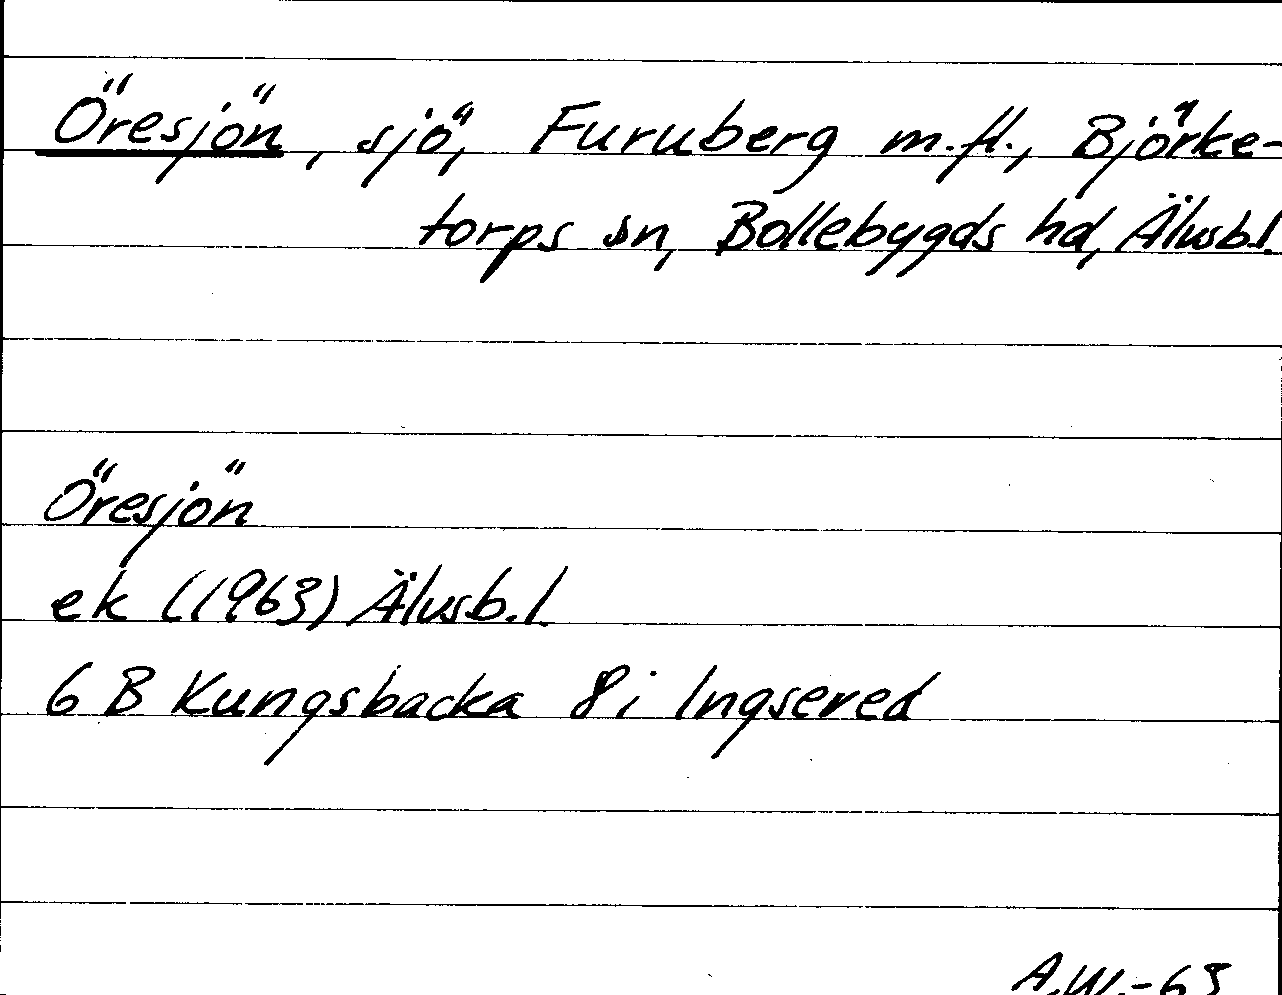 Öresjön, sjö, Furuberg m.fl., Björke-
torps sn, Bollebygds hd, Älvsb.l.
Öresjön
ek (1963) Älvsb.l.
6 B Kungsbacka 8i Ingsered
A.W.-63